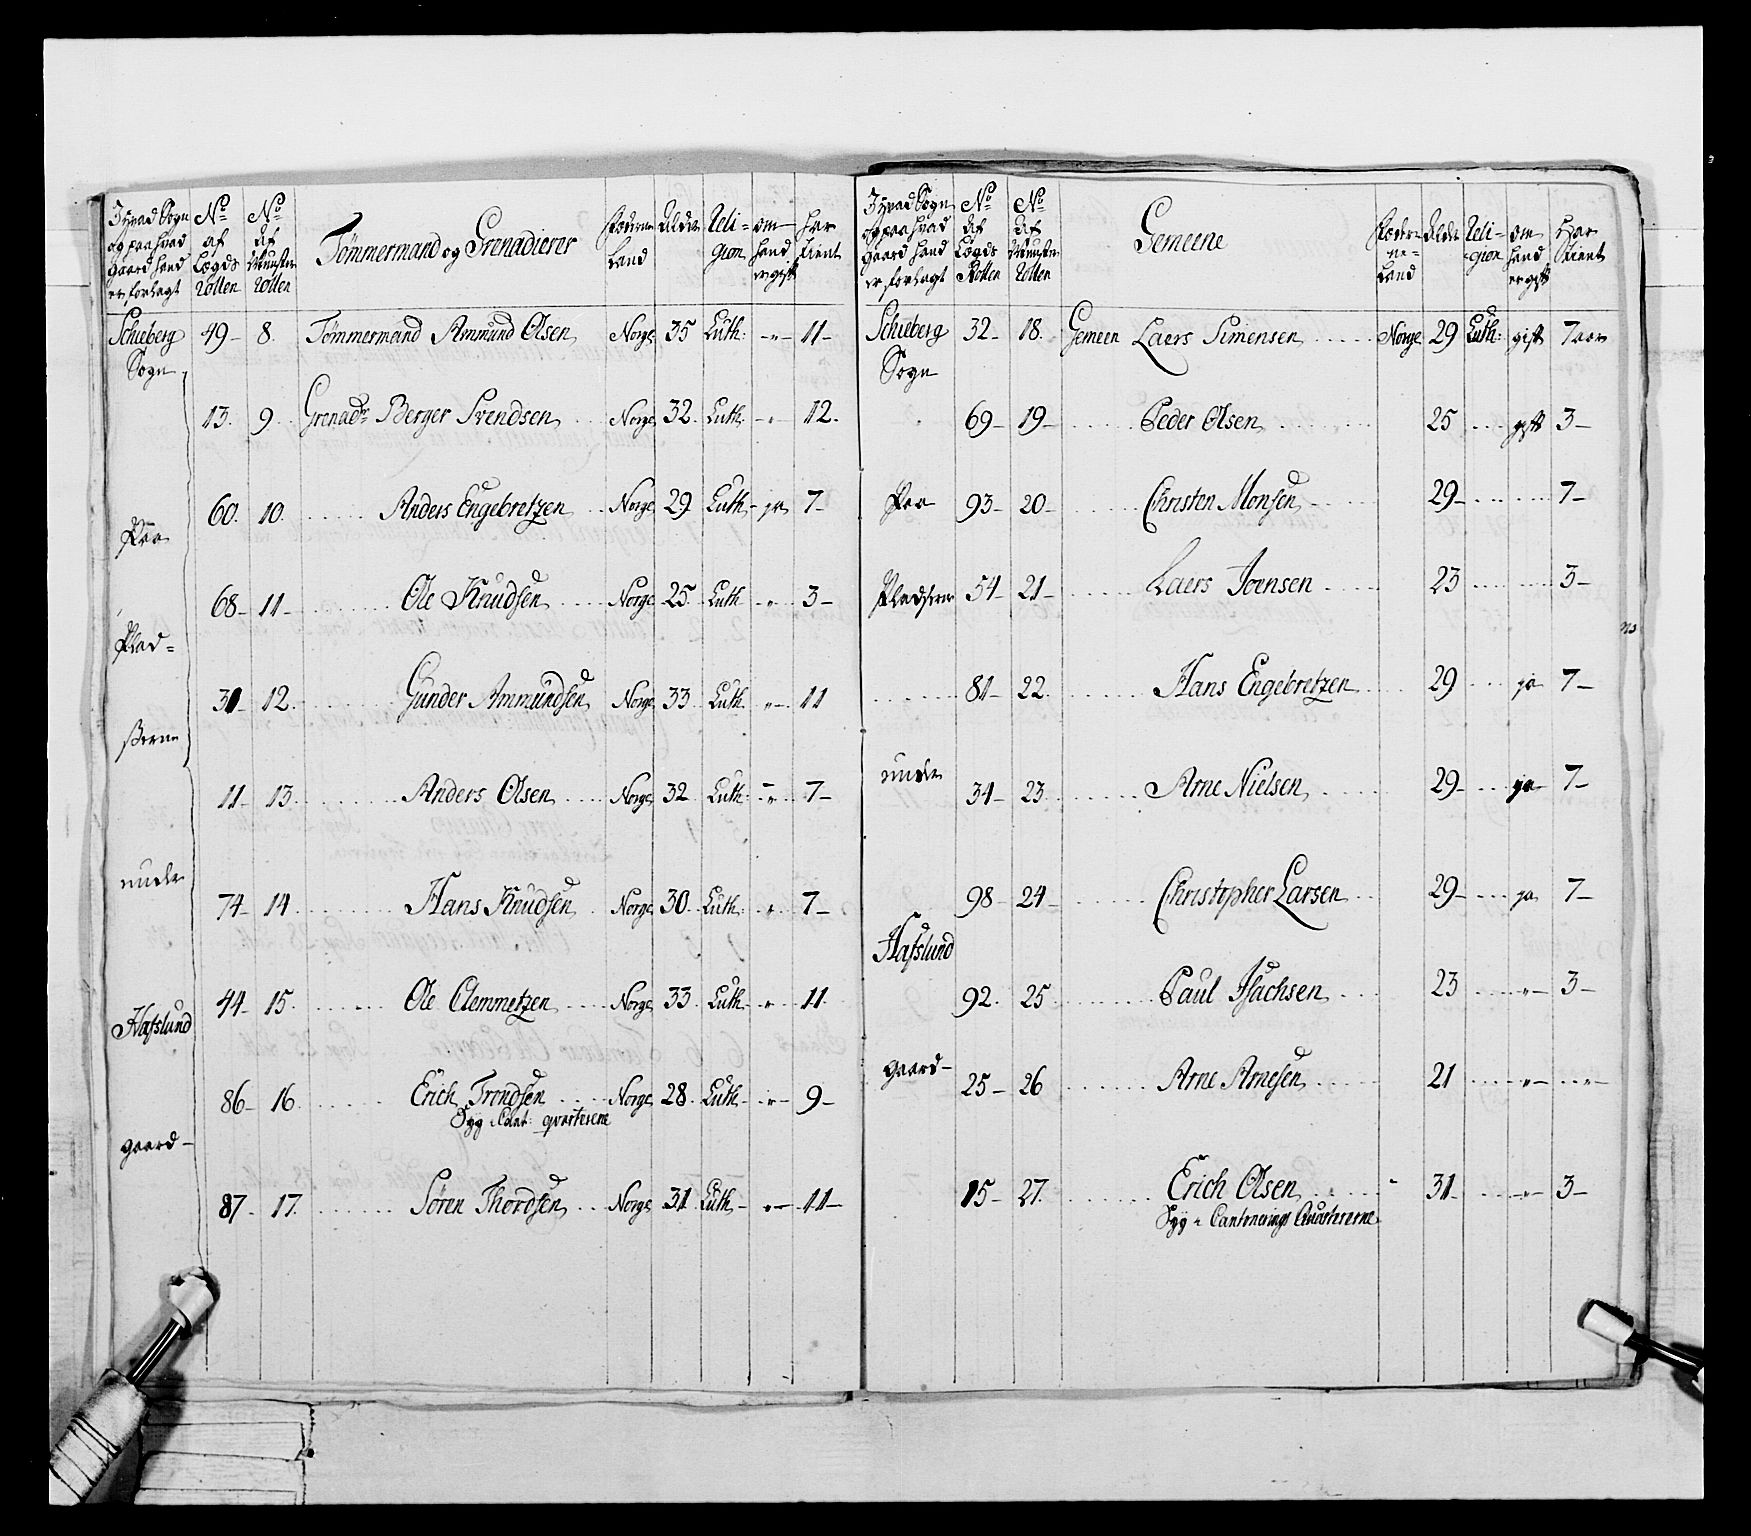 I hvad Sogn og paa hvad Gaard hand er forlagt | No af Lægds Rollen | No af Mynster Rollen | Tømmermand og Grenadierer | Føderne Land | Alder | Religion | om hand er gift | har tient
Schieberg Sogn | 49 | 8. | Tømmermand Ammund Olsen | Norge | 35 | Luth: | -"- | 11-
13. | 9. | Grenadr Berger Svendsen | Norge | 32. | Luth: | -"- | 12.
Paa | 60. | 10. | Anders Engebretzen | Norge | 29 | Luth- | ja | 7-
68- | 11- | Ole Knudsen | Norge | 25. | Luth | -"- | 3-
Plad=
31- | 12. | Gunder Ammundsen | Norge | 33. | Luth | "- | 11
sserne
11- | 13. | Anders Olsen | Norge | 32 | Luth: | -"- | 7-
under
74- | 14 | Hans Knudsen | Norge | 30. | Luth: | " | 7-
44- | 15. | Ole Clemmetzen | Norge | 33. | Luth- | " | 11.
Hafslund
86- | 16. | Erich Trondsen | Norge | 28. | Luth- | -"- | 9-
Syg i Cant: qvarterene
gaard-
87- | 17. | Søren Thordsen | Norge | 31 | Luth- | "- | 11-
I hvad Sogn og paa hvad Gaard hand er forlagt | No af Lægds Rollen | No af Mynster Rollen | Gemeene | Føderne-Land | Alder | Religion | om hand er gift | har tient
Schieberg Sogn | 32- | 18. | Gemeen Laers Simensen | Norge | 29 | Luth: | gift | 7 aar
69- | 19- | Peder Olsen | 25 | gift | 3-
Paa | 93- | 20- | Christen Monsen | 29- | 7-
Pladserne | 54- | 21- | Laers Joensen | 23 | 3-
81- | 22. | Hans Engebretzen | 29 | ja | 7-
under
34- | 23. | Arne Nielsen | 29- | ja- | 7-
98- | 24- | Christopher Larsen | 29- | ja | 7-
Hafslund
92. | 25. | Paul Isachsen | 23 | -"- | 3-
gaard-
25- | 26 | Arne Arnesen | 21 | "- | -"-
15- | 27. | Erich Olsen | 31- | -"- | 3-
Syg i Cantonerings Quarterene